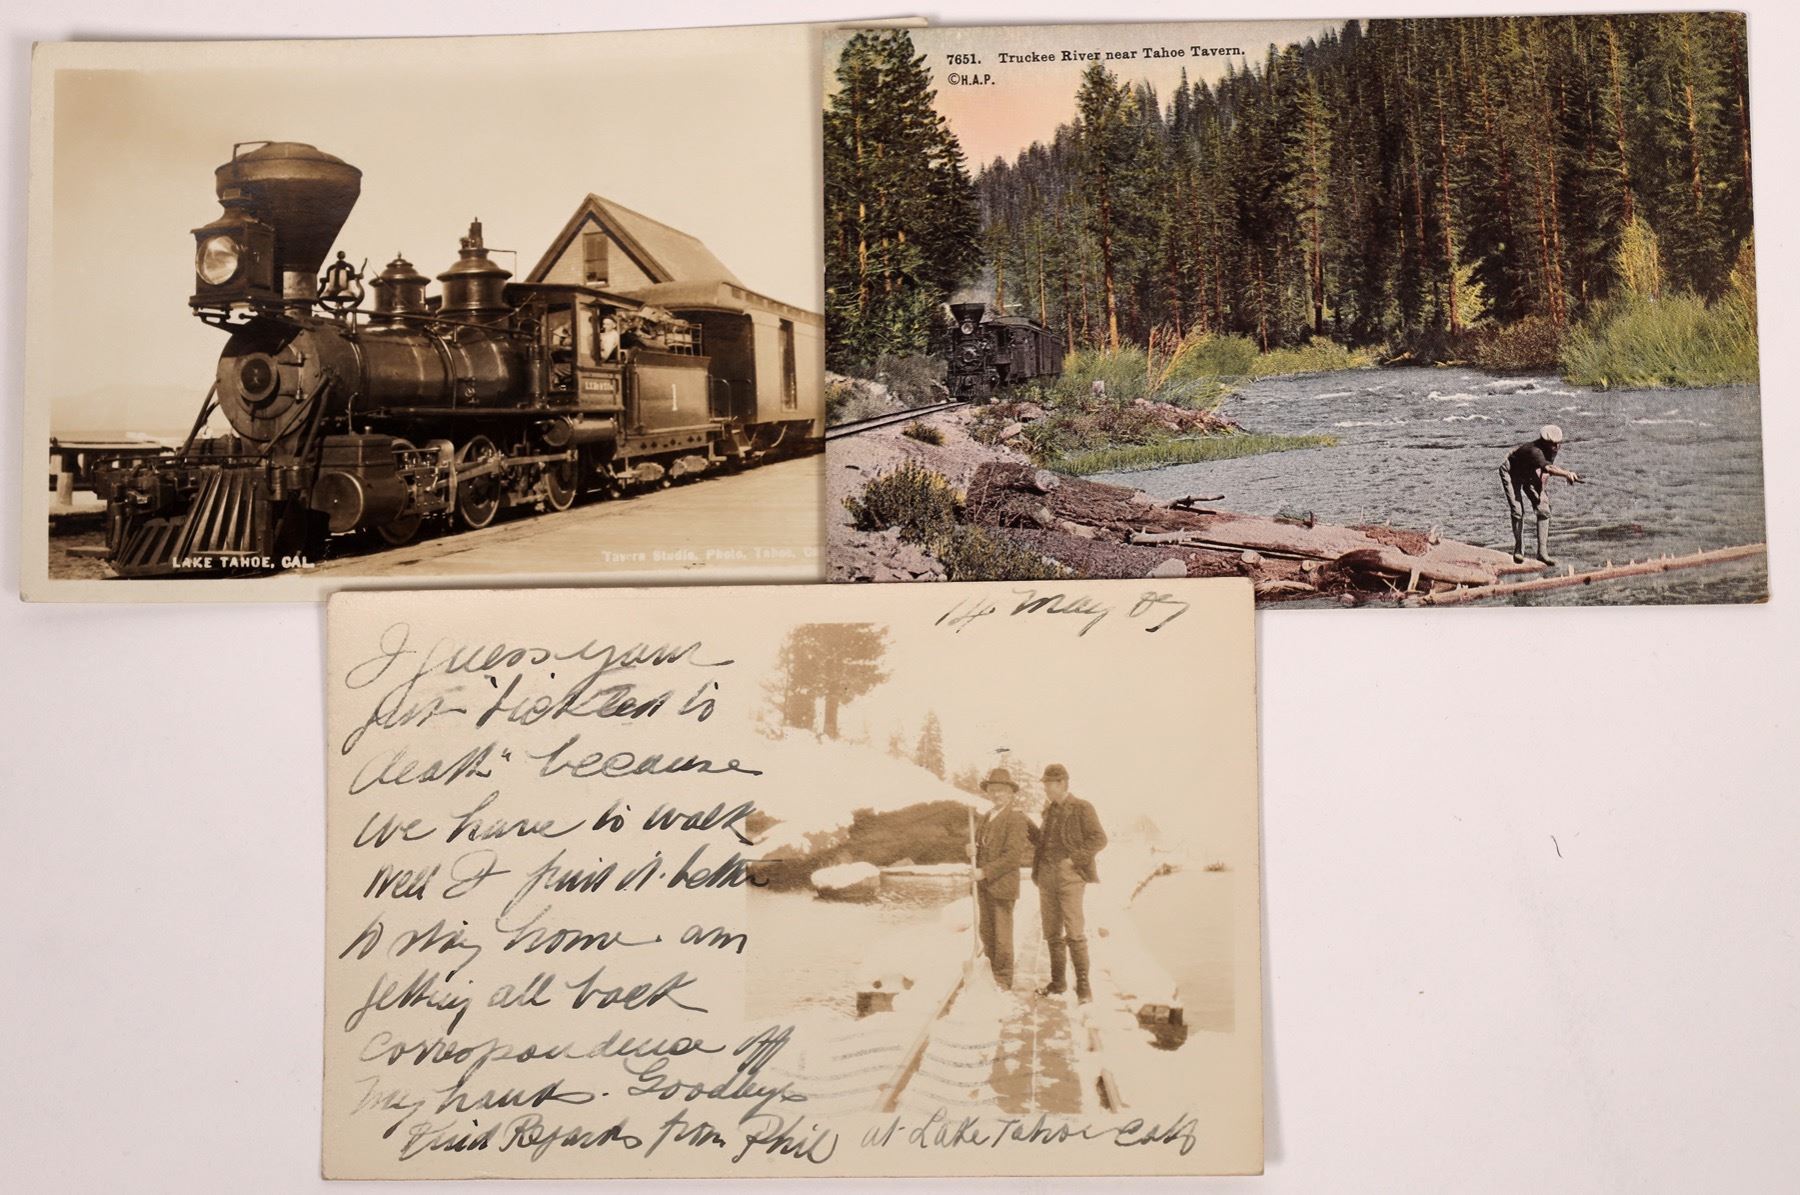 7651. Truckee River near Tahoe Tavern.
©H.A.P.
1
LAKE TAHOE, CAL.
Tavern Studio, Photo, Tahoe, Ca
14 May 07
I guess your
just "tickled to
death" because
we have to walk
Well I find it better
to stay home. am
getting all back
correspondence off
my hands. Goodbye
Kind Regards from Phil at Lake Tahoe Calif